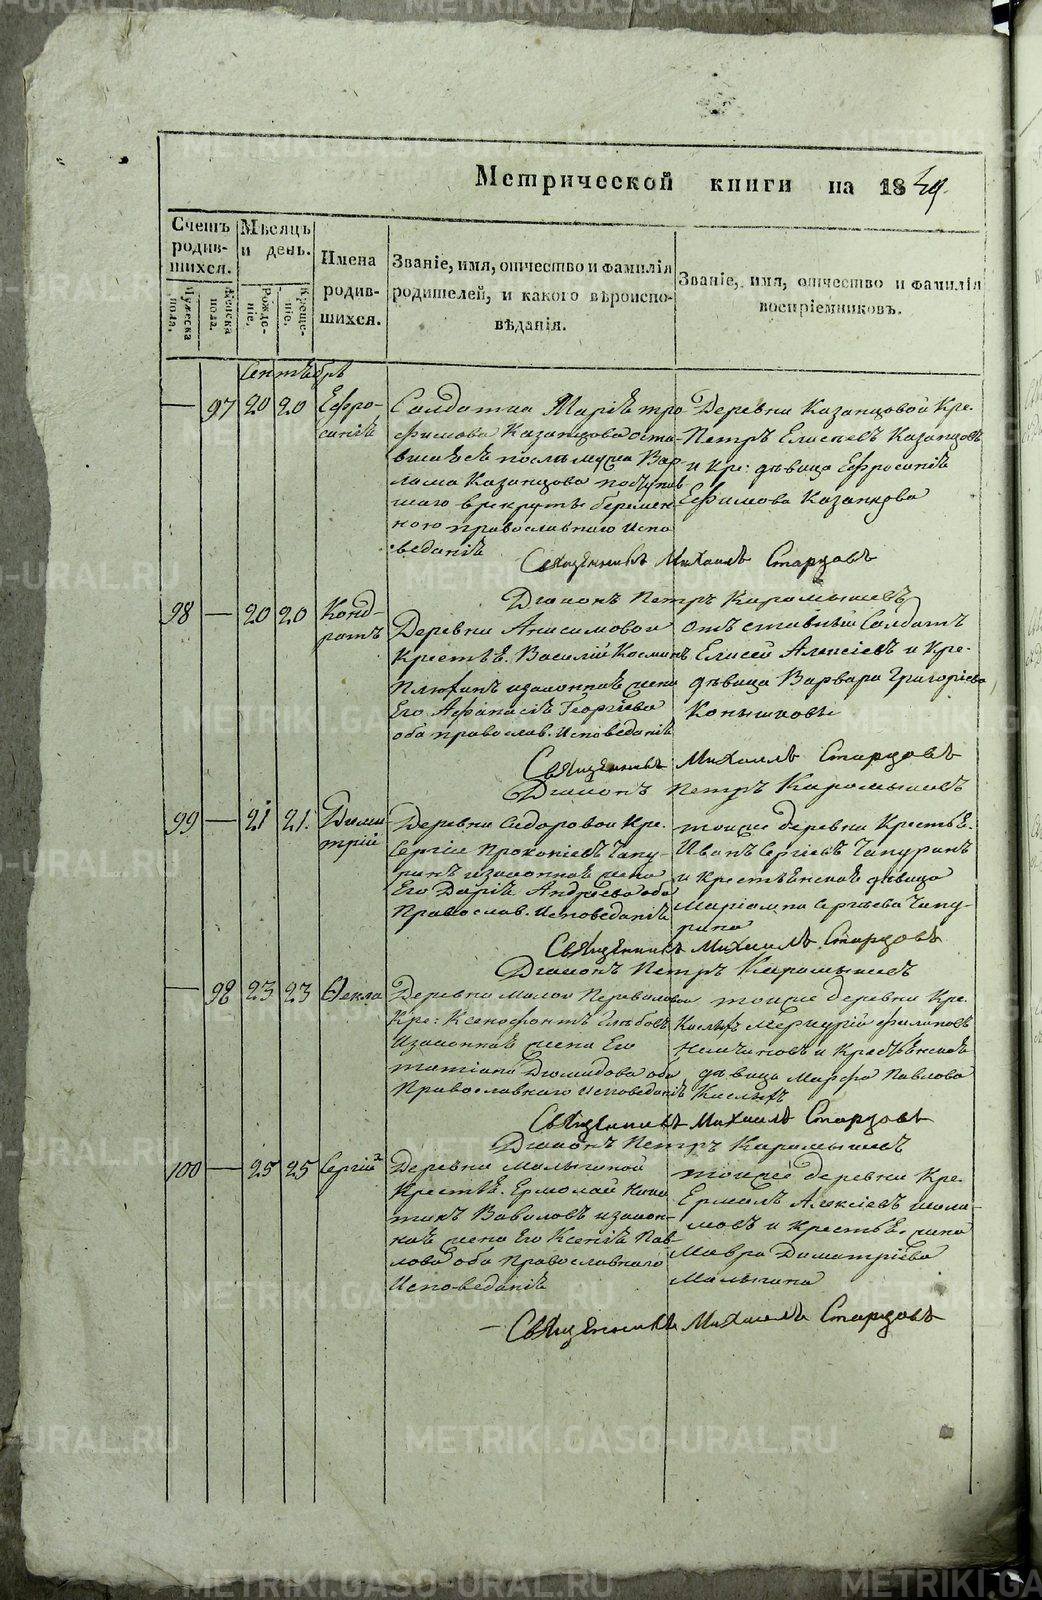 METRIKI.GASO-URAL.RU
Метрической книги на 1849.
Счетъ родив-шихся.
Мужеска пола.
Женска пола.
Мѣсяцъ и день.
Рожде-ніе.
Креще-ніе.
Имена родив-шихся.
Званіе, имя, отчество и фамилія родителей, и какого вѣроиспо-вѣданія.
Званіе, имя, отчество и фамилія воспріемниковъ.
Сентябрь
— 97 20 20 Ефро-
синія
Солдатка Марія Тро
фимова Казанцова оста-
вшаяся послѣ мужа Вар
лама Казанцова поступив
шаго в рекруты беремен
ною православнаго испо
веданія
Деревни Казанцовой Кре.
Петръ Елисеевъ Казанцовъ
и Кре: дѣвица Ефросинія
Ефимова Казанцова
Священникъ Михаилъ Старцовъ
Діаконъ Петръ Карамышевъ
98 — 20 20 Конд-
ратъ
Деревни Анисимовой
Крестья. Василій Козминъ
Плюхинъ и законная жена
Его Афанасія Георгіева
оба православ. исповеданія
отъставный Солдатъ
Елисей Алексіевъ и Кре-
дѣвица Варвара Григоріева
Священникъ Михаилъ Старцовъ
Діаконъ Петръ Карамышевъ
99 — 21 21. Дими-
трій
Деревни Сидоровой Кре.
Сергій Прокопіевъ Чапу-
ринъ и законная жена
Его Дарія Андреева оба
Православ. исповеданія
тойже деревни Крестья.
Иванъ Сергіевъ Чапуринъ
и крестьянская дѣвица
Маріамна Сергѣева Чапу-
рина
Священникъ Михаилъ Старцовъ
Діаконъ Петръ Карамышевъ
— 98 23 23 Ѳекла
Деревни Малой Переваловой
Кре: Ксенофонтъ Глѣбовъ
и законная жена Его
Татіана Діомидова оба
Православнаго исповеданія
тойже деревни Кре.
Меркурій Филиповъ
и Крестьянская
дѣвица Марфа Павлова
Священникъ Михаилъ Старцовъ
Діаконъ Петръ Карамышевъ
100 — 25 25 Сергій
Деревни Малыгиной
Крестья. Ермолай
Вавиловъ и закон-
ная жена Его Ксенія Пав-
лова оба Православнаго
Исповеданія
тойже деревни Кре.
Ермилъ Алексіевъ
и Крестья. жена
Мавра Димитріева
Малыгина
— Священникъ Михаилъ Старцовъ